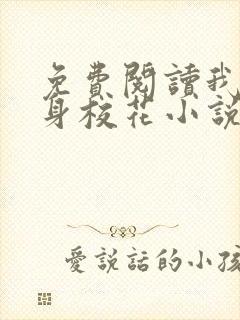 免費閱讀我
身校花小說
愛說話的小孩